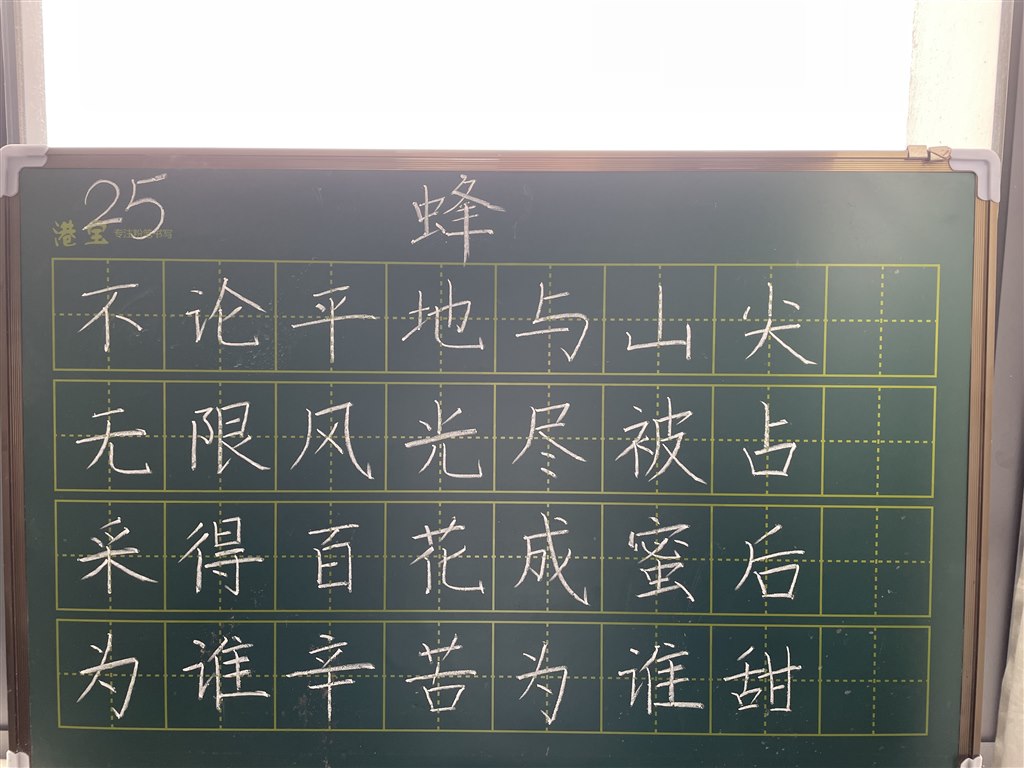 25 蜂
港宝 专注粉笔书写
不论平地与山尖
无限风光尽被占
采得百花成蜜后
为谁辛苦为谁甜